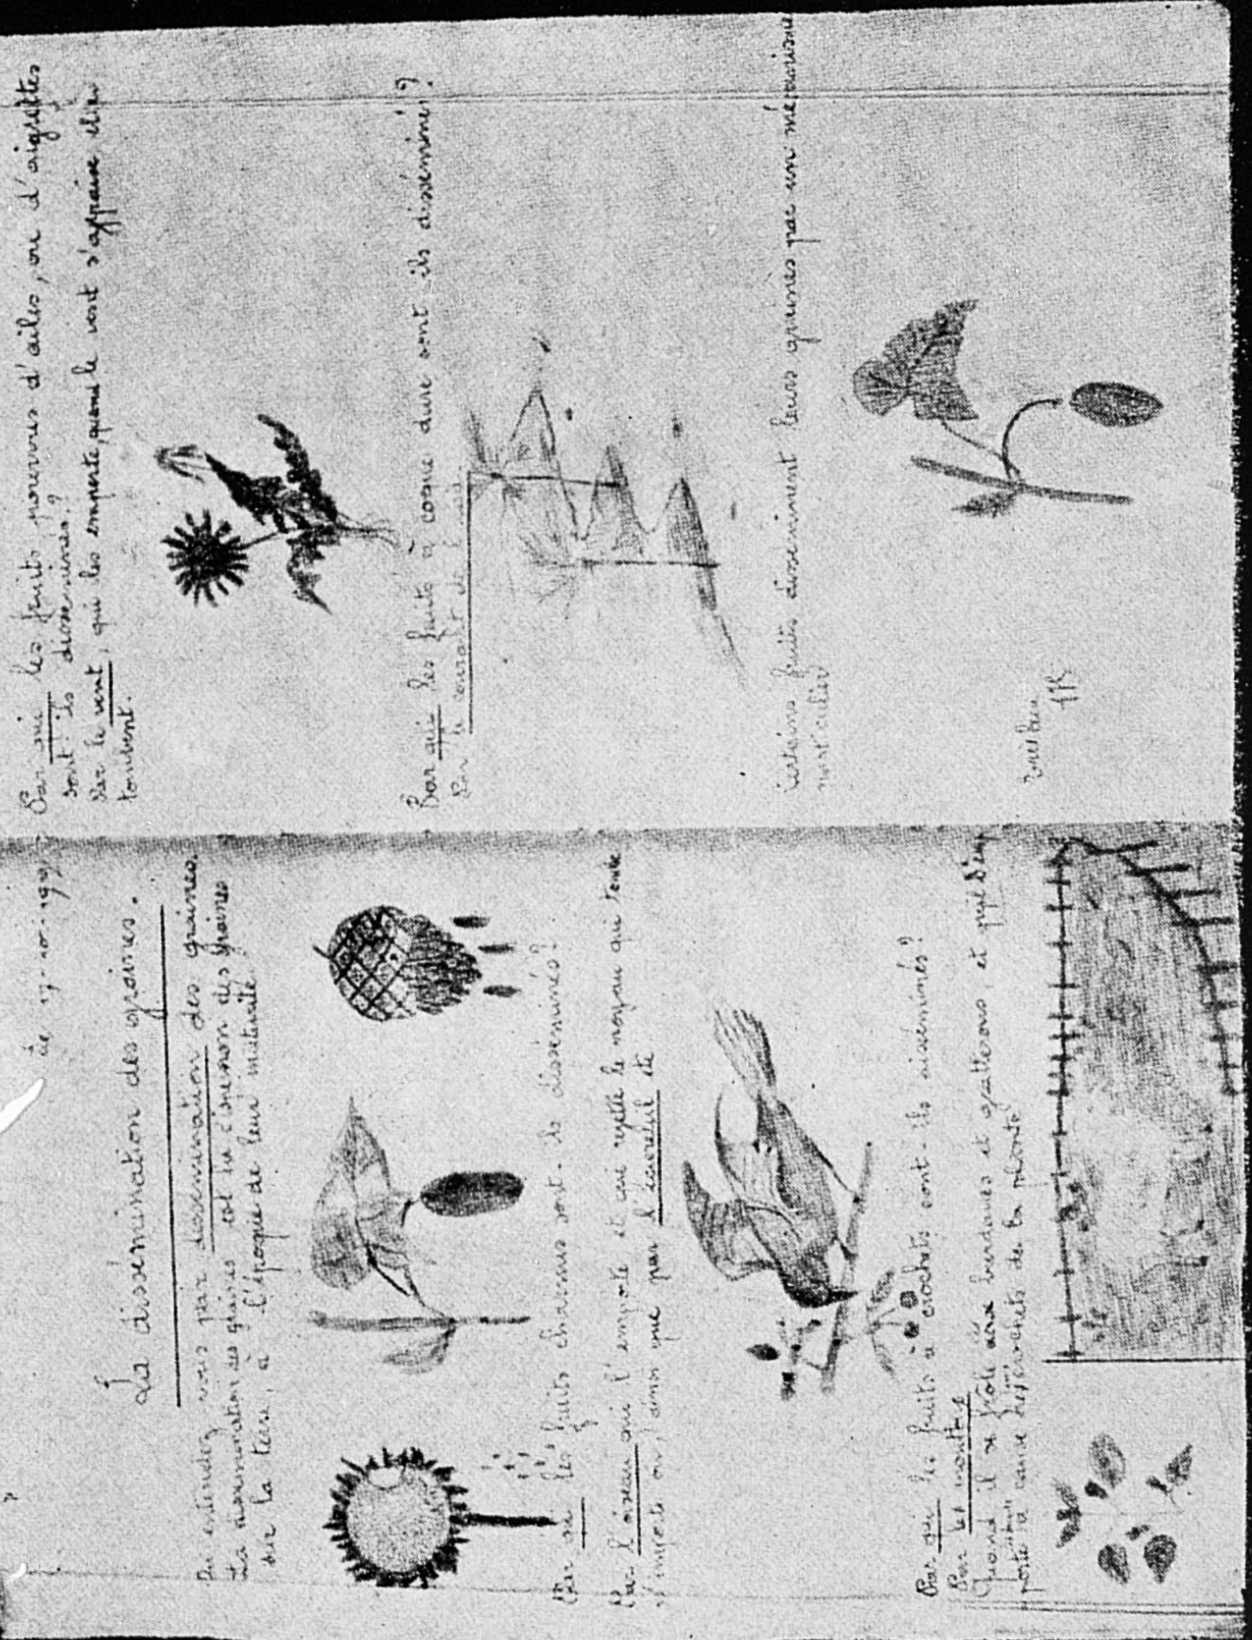 La dissémination des graines.
vous par dissémination des graines.
La dissémination des graines est la des graines
sur la terre, à l'époque de leur maturité.
Par qui les fruits charnus sont-ils disséminés?
Par l'oiseau qui l'emporte et qui rejette le noyau qui tombe
ainsi que par l'écureuil etc
Par qui les fruits à crochets sont-ils disséminés?
Par les moutons
Quand il se frôle aux bardanes et gratterons, et puis
à cause des crochets de la plante
Par qui les fruits pourvus d'ailes, ou d'aigrettes
sont-ils disséminés?
Par le vent, qui les emporte, quand le vent s'apaise, elles
tombent.
Par qui les fruits à coque dure sont-ils disséminés?
Par le courant de
Certains fruits disséminent leurs graines par un mécanisme
particulier